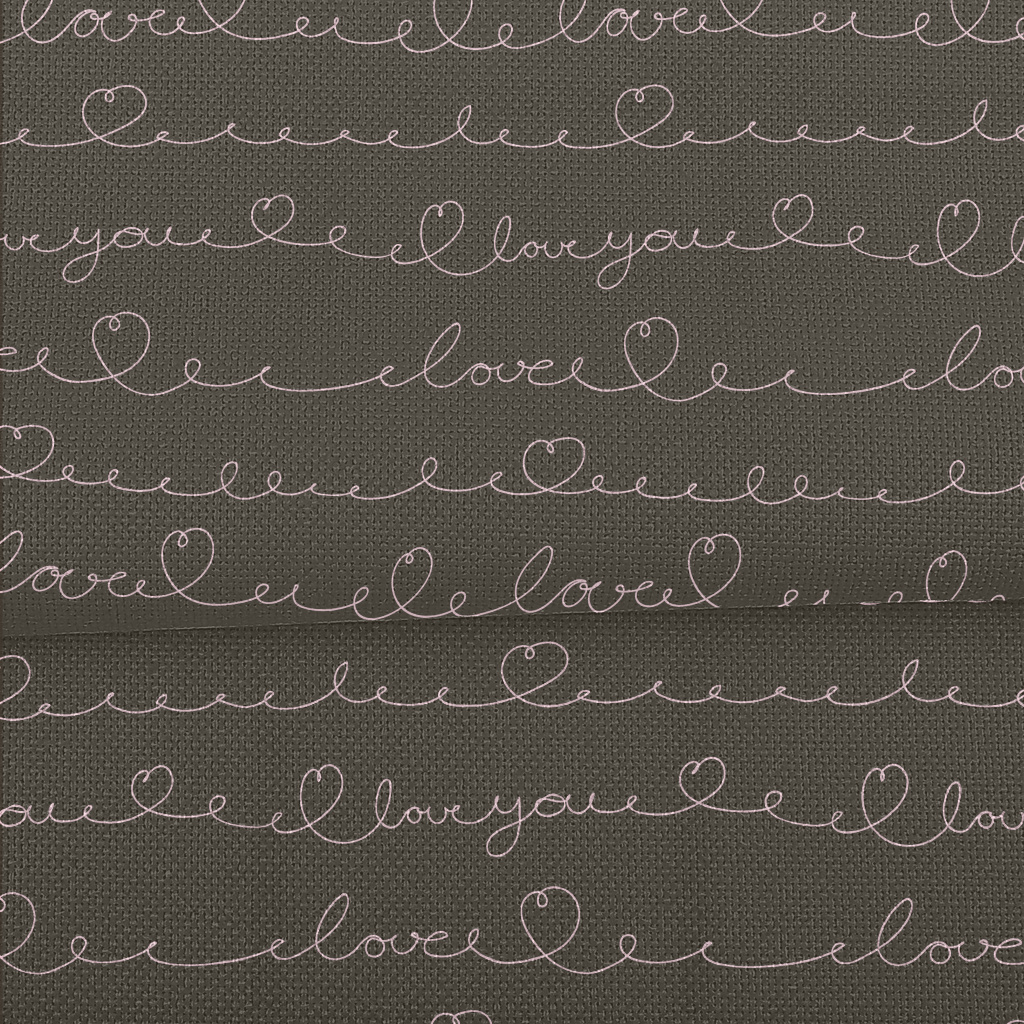 love love
love you love you
love lo
love love
love you lov
love love